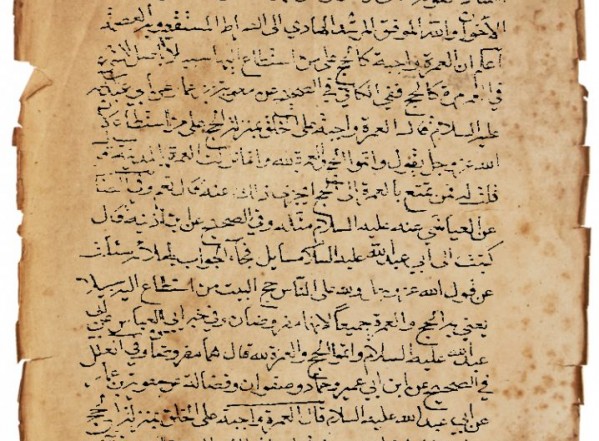 الأخوان والله الموفق المرشد الهادي الى الصراط المستقيم وبه العصمة
أعلم ان العمرة واجبة كالحج على من استطاع اليها سبيلا بأصل الشرع
في العمر مرة كالحج ففي الكافي في الصحيح عن معوية بن عمار عن أبي عبد الله
عليه السلام قال العمرة واجبة على الخلق بمنزلة الحج على من استطاع لأن
الله عز وجل يقول واتموا الحج والعمرة لله وانما نزلت العمرة بالمدينة قال
قلت له فمن تمتع بالعمرة الى الحج ايجزي ذلك عنه قال نعم وفي
عن العياشي عنه عليه السلام مثله وفي الصحيح عن بن أذينة قال
كتبت الى أبي عبد الله عليه السلام بمسايل فجاء الجواب باملائه سئلت
عن قول الله عز وجل ولله على الناس حج البيت من استطاع اليه سبيلا
يعني به الحج والعمرة جميعا لانهما مفروضان وفي خبر أبي العباس عن أبي
عبد الله عليه السلام واتموا الحج والعمرة لله قال هما مفروضان وفي العلل
في الصحيح عن ابن أبي عمير وحماد وصفوان وفضالة عن معوية بن
عن أبي عبد الله عليه السلام قال العمرة واجبة على الخلق بمنزلة الحج